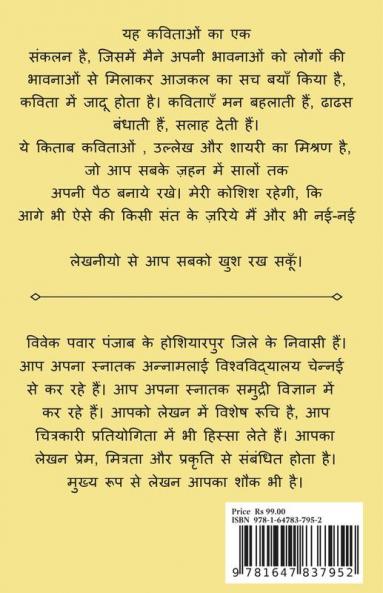 यह कविताओं का एक
संकलन है, जिसमें मैने अपनी भावनाओं को लोगों की
भावनाओं से मिलाकर आजकल का सच बयाँ किया है,
कविता में जादू होता है। कविताएँ मन बहलाती हैं, ढाढस
बंधाती हैं, सलाह देती हैं।
ये किताब कविताओं , उल्लेख और शायरी का मिश्रण है,
जो आप सबके ज़हन में सालों तक
अपनी पैठ बनाये रखे। मेरी कोशिश रहेगी, कि
आगे भी ऐसे की किसी संत के ज़रिये मैं और भी नई-नई
लेखनीयो से आप सबको खुश रख सकूँ।
विवेक पवार पंजाब के होशियारपुर जिले के निवासी हैं।
आप अपना स्नातक अन्नामलाई विश्वविद्यालय चेन्नई
से कर रहे हैं। आप अपना स्नातक समुद्री विज्ञान में
कर रहे हैं। आपको लेखन में विशेष रूचि है, आप
चित्रकारी प्रतियोगिता में भी हिस्सा लेते हैं। आपका
लेखन प्रेम, मित्रता और प्रकृति से संबंधित होता है।
मुख्य रूप से लेखन आपका शौक भी है।
Price Rs 99.00
ISBN 978-1-64783-795-2
9 781647 837952